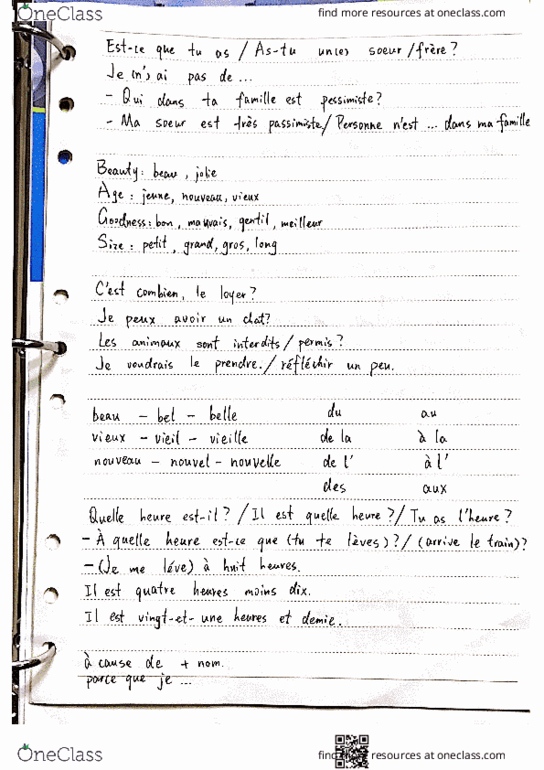 OneClass find more resources at oneclass.com
Est-ce que tu as / As-tu un(e) soeur / frère ?
Je (n') ai pas de ...
- Qui dans ta famille est pessimiste ?
- Ma soeur est très passimiste / Personne n'est ... dans ma famille
Beauty : beau , jolie
Age : jeune, nouveau, vieux
Goodness : bon , mauvais, gentil , meilleur
Size : petit , grand, gros, long
C'est combien, le loyer ?
Je peux avoir un chat?
Les animaux sont interdits / permis ?
Je voudrais le prendre. / réfléchir un peu.
beau - bel - belle du au
vieux - vieil - vieille de la à la
nouveau - nouvel - nouvelle de l' à l'
des aux
Quelle heure est-il ? / Il est quelle heure ? / Tu as l'heure ?
- À quelle heure est-ce que (tu te lèves) ? / (arrive le train) ?
- (Je me léve) à huit heures.
Il est quatre heures moins dix.
Il est vingt-et-une heures et demie.
à cause de + nom.
parce que je ...
OneClass find more resources at oneclass.com